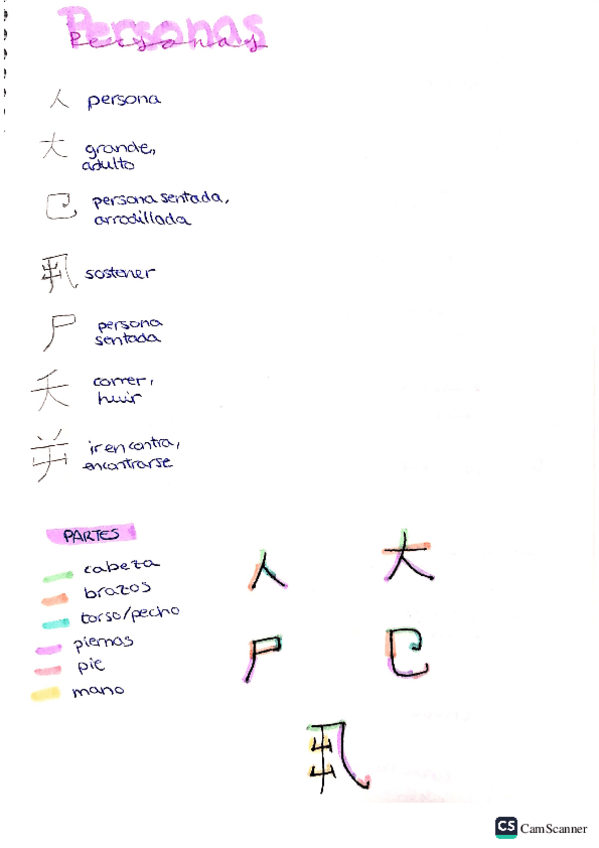 Personas
人 persona
大 grande,
adulto
㔾 persona sentada,
arrodillada
丮 sostener
尸 persona
sentada
夭 correr,
huir
屰 ir en contra,
encontrarse
PARTES
cabeza
brazos
torso/pecho
piernas
pie
mano
人 大
尸 㔾
丮
CS CamScanner